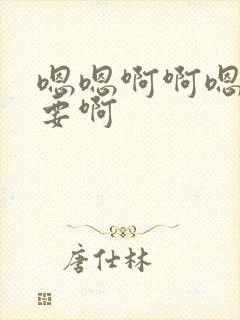 嗯嗯啊啊嗯
要啊
唐仕林